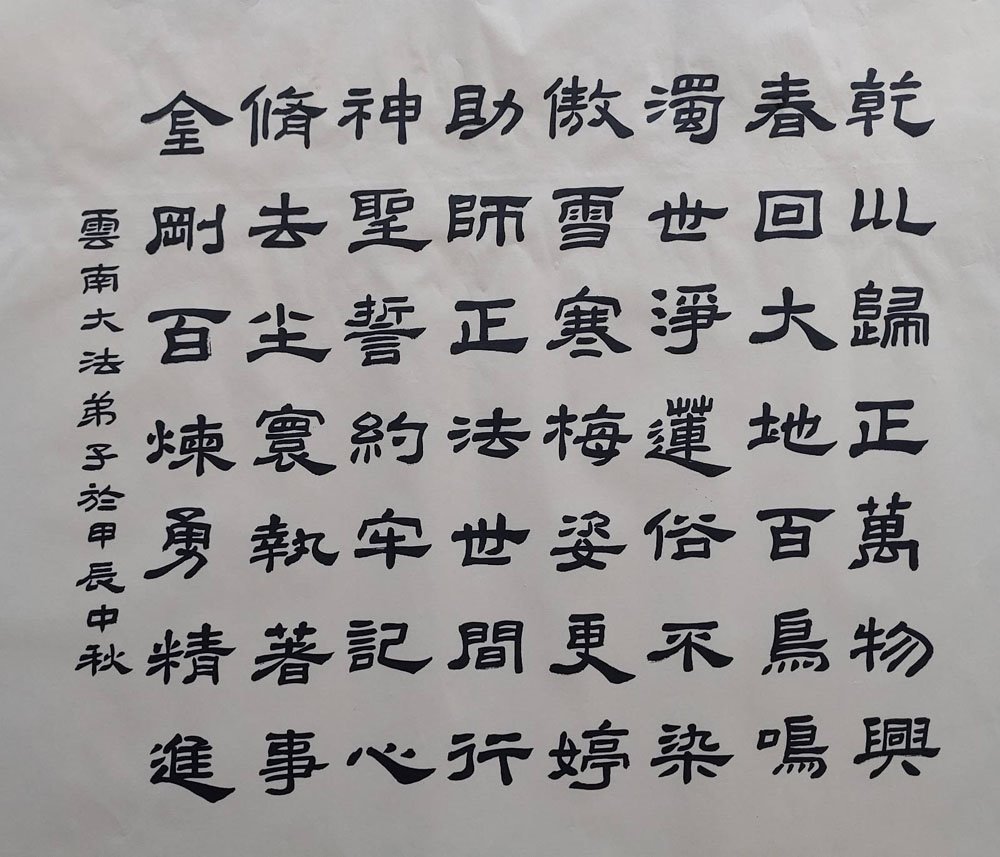 乾坤歸正萬物興
春回大地百鳥鳴
濁世淨蓮俗不染
傲雪寒梅姿更婷
助師正法世間行
神聖誓約牢記心
脩去尘寰執著事
金剛百煉勇精進
雲南大法弟子於甲辰中秋